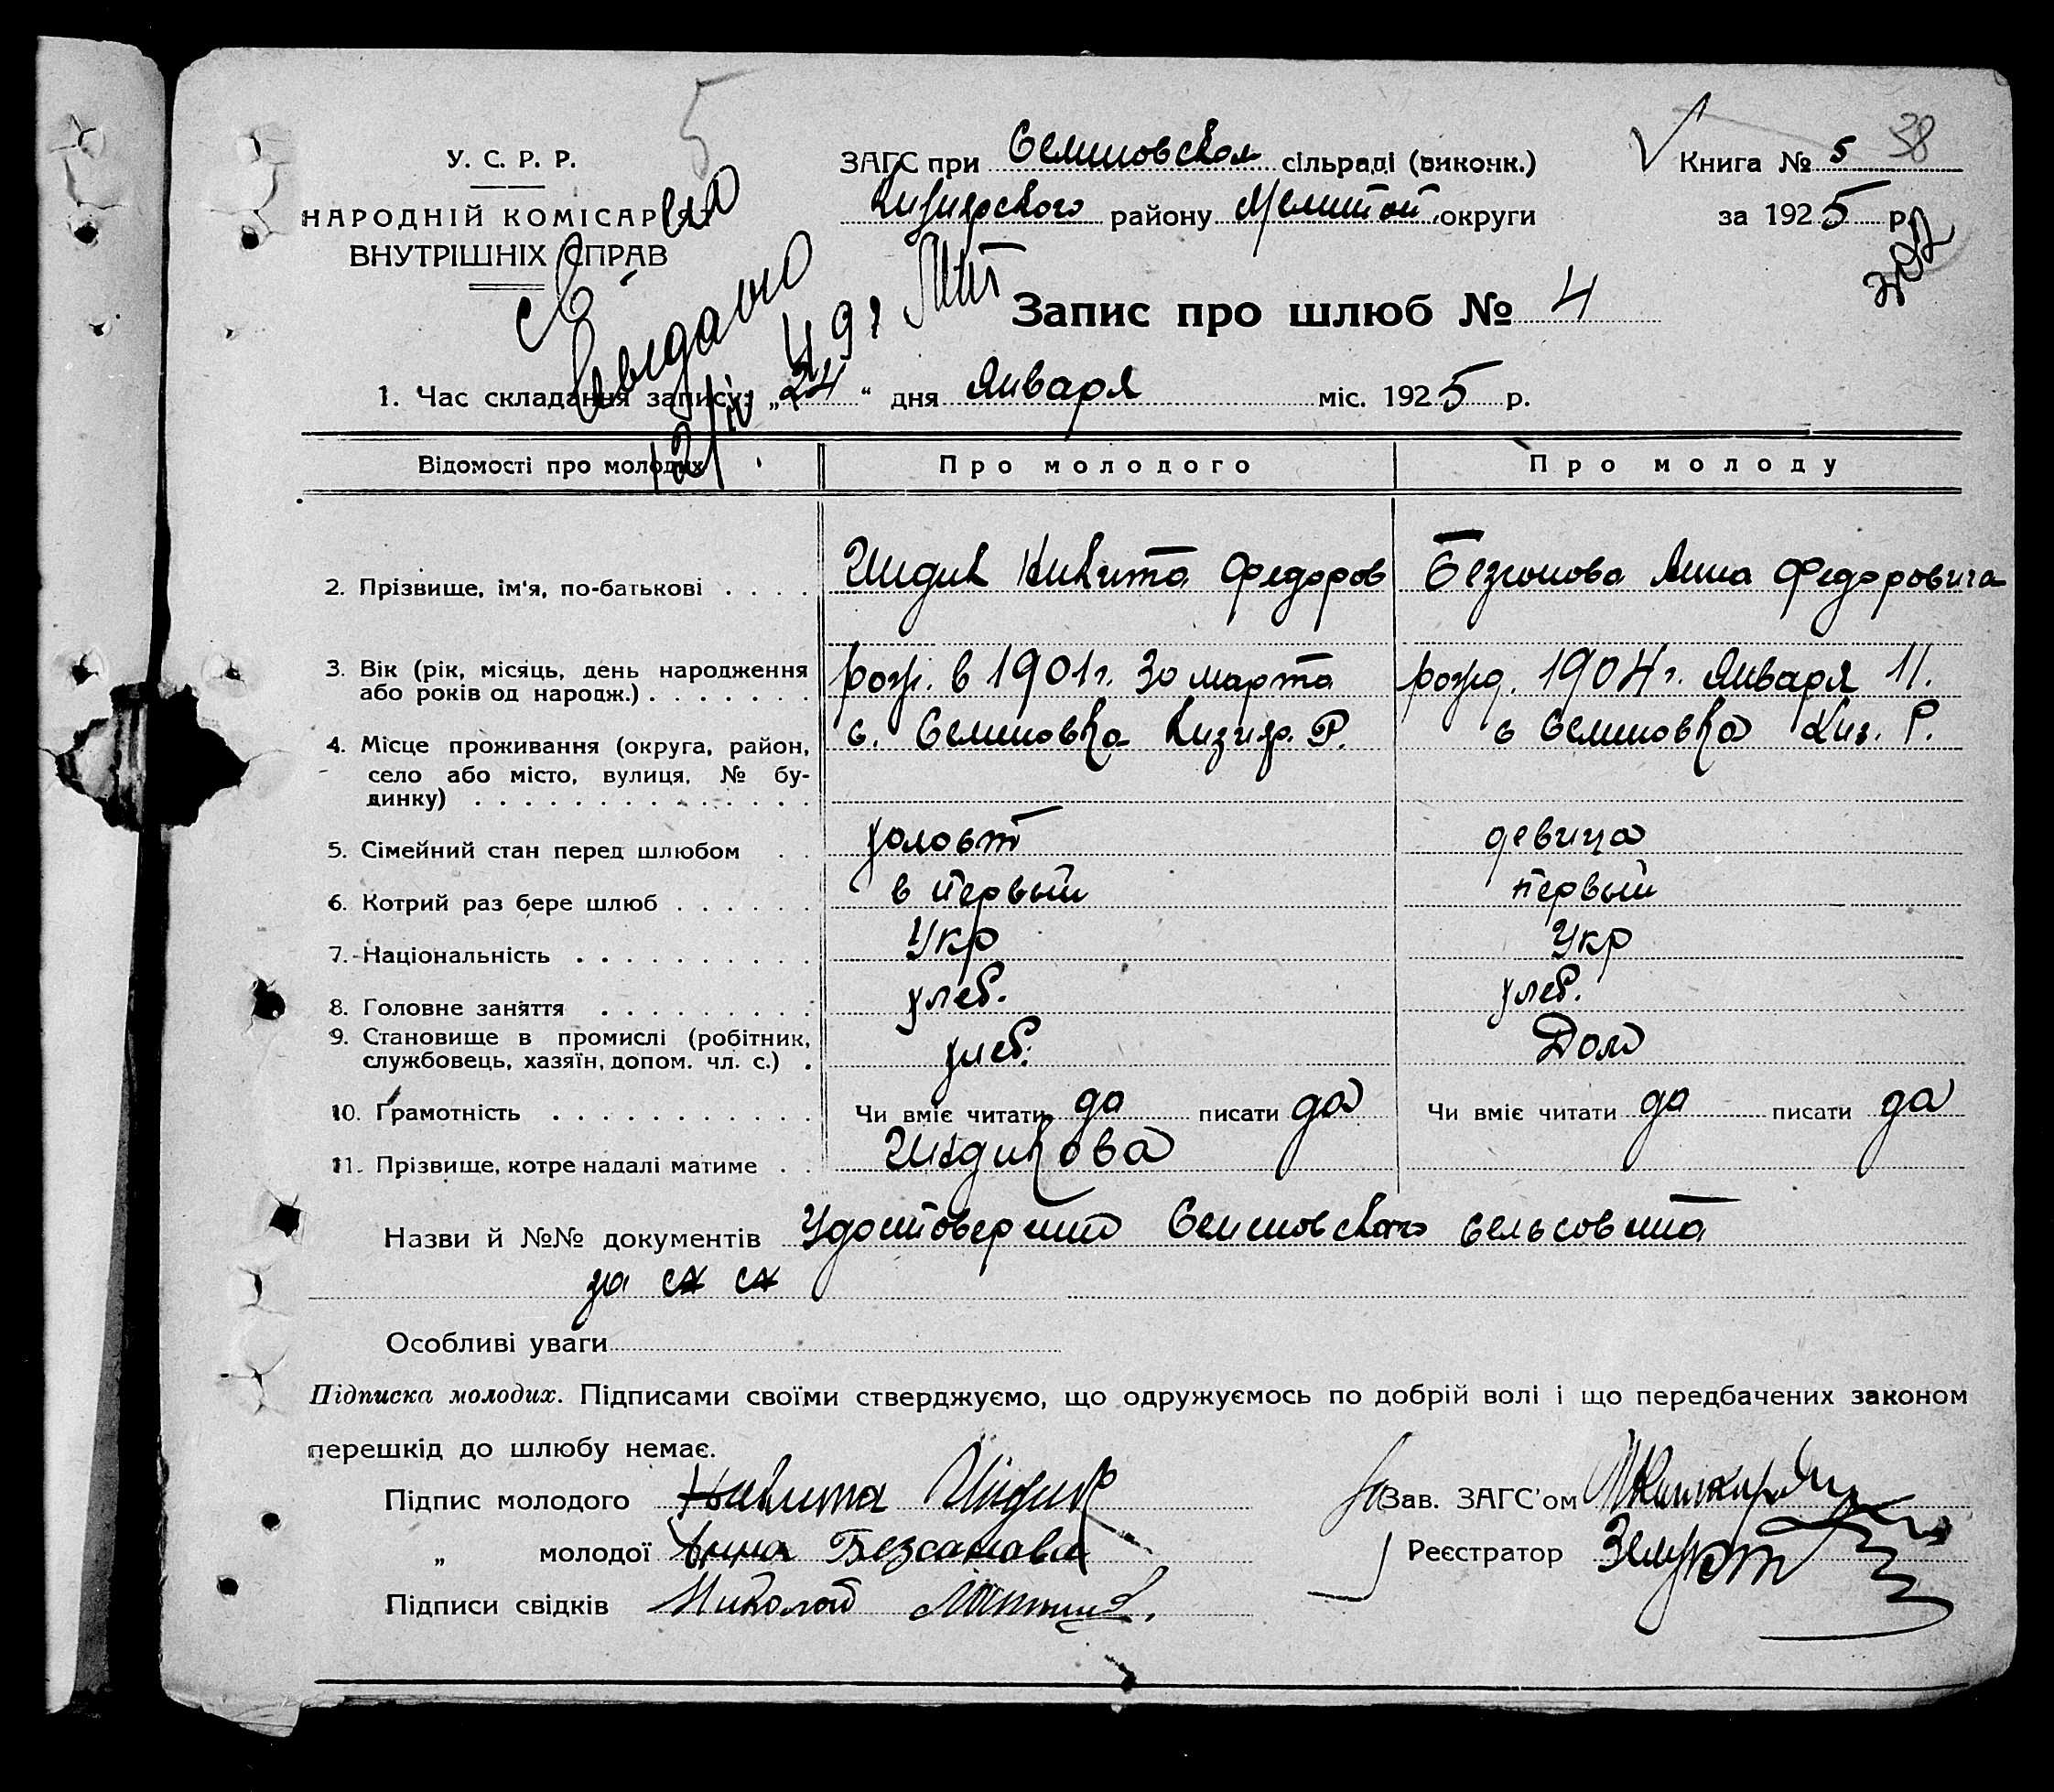 5
У. С. Р. Р.
НАРОДНІЙ КОМІСАРІЯТ
ВНУТРІШНІХ СПРАВ
ЗАГС при Семеновском сільраді (виконк.)
Кизиярского району Мелитоп. округи
Книга № 5 38
за 1925 р.
Св-во
выдано
12/IV 49г
Запис про шлюб № 4
1. Час складання запису: „24“ дня Января міс. 1925 р.
Відомості про молодих Про молодого Про молоду
2. Прізвище, ім'я, по-батькові Никита Федоров Анна Федоровича
3. Вік (рік, місяць, день народження рожд. в 1901 г. 30 марта рожд. 1904 г. Января 11.
або років од народж.)
4. Місце проживання (округа, район, с. Семеновка Кизияр. Р. с Семеновка Киз. Р.
село або місто, вулиця, № бу-
динку)
5. Сімейний стан перед шлюбом холост девица
6. Котрий раз бере шлюб в первый первый
7. Національність Укр Укр
8. Головне заняття хлеб. хлеб.
9. Становище в промислі (робітник, хлеб. Дом
службовець, хазяїн, допом. чл. с.)
10. Грамотність Чи вміє читати да писати да Чи вміє читати да писати да
11. Прізвище, котре надалі матиме
Назви й №№ документів Удостоверение Семеновского сельсовета
за
Особливі уваги
Підписка молодих. Підписами своїми стверджуємо, що одружуємось по добрій волі і що передбачених законом
перешкід до шлюбу немає.
Підпис молодого Никита
Зав. ЗАГС'ом
„ молодої Анна
Реєстратор
Підписи свідків Николай